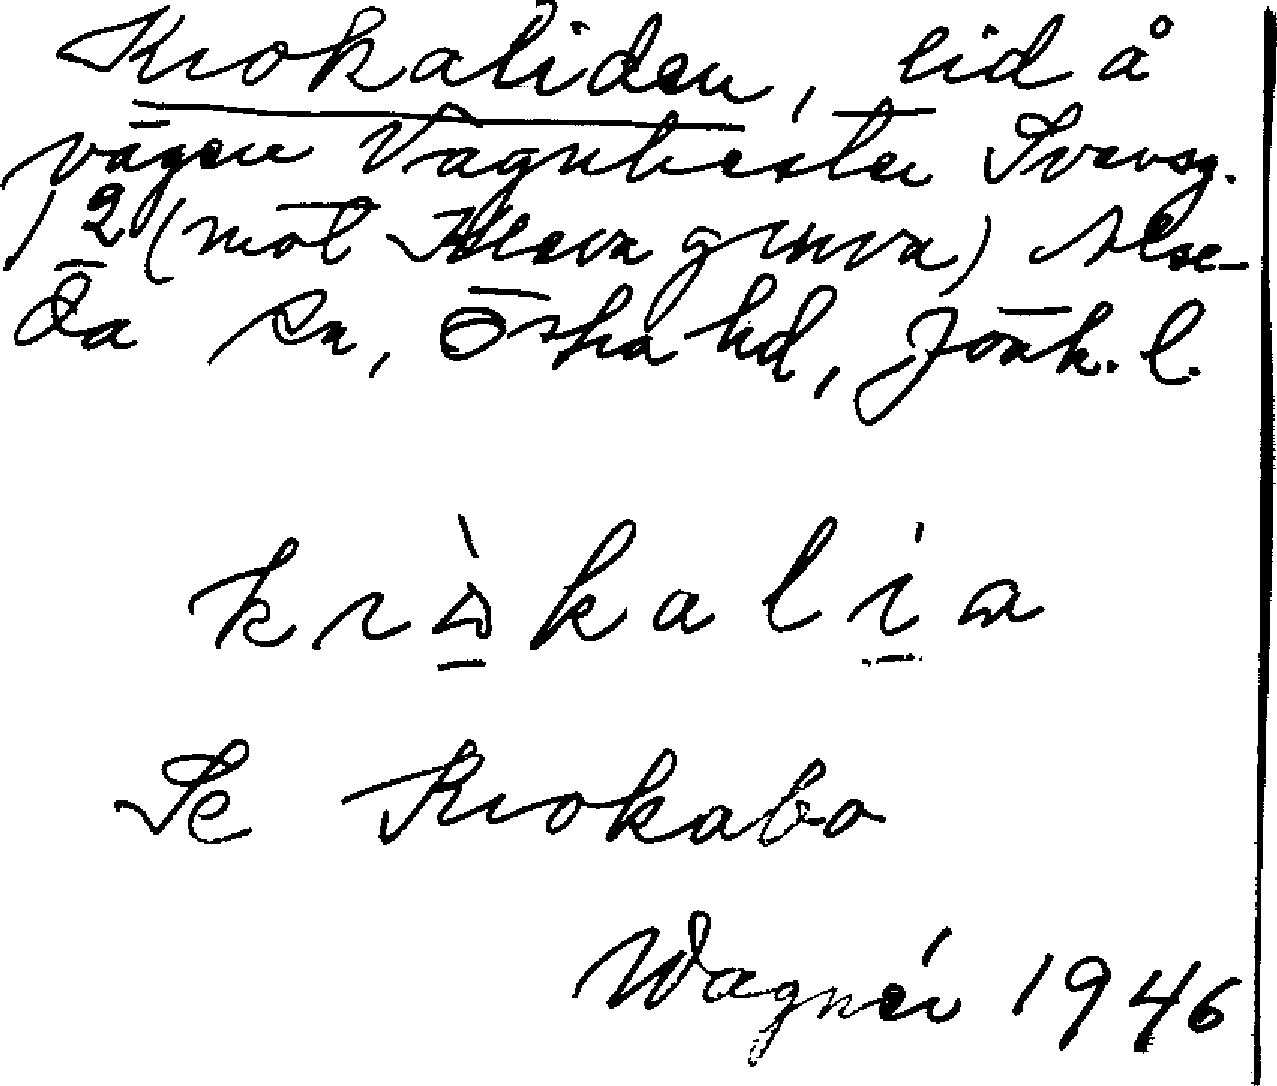 Krokaliden, lid å
vägen Vagnhester Svensg.
1 2 (mot Kleva gruva) Alse-
da sn, Östra hd, Jönk. l.
kròkalia
Se Krokabo
Wagnér 1946